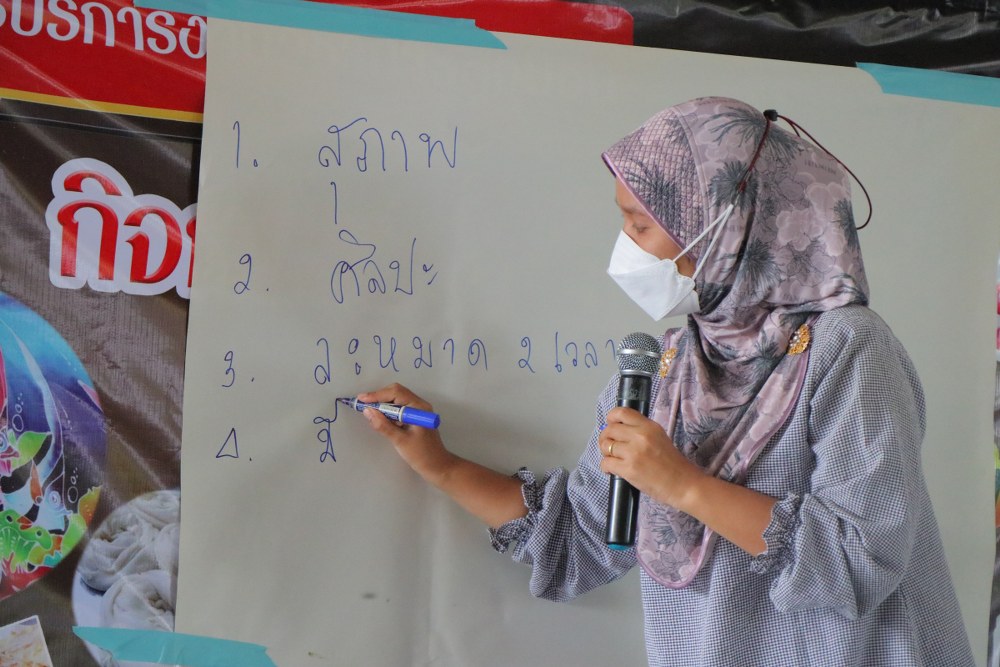 บริการ
กิจ
1. สุภาพ
2. ศิลปะ
3. ละหมาด 2 เวลา
4. มี